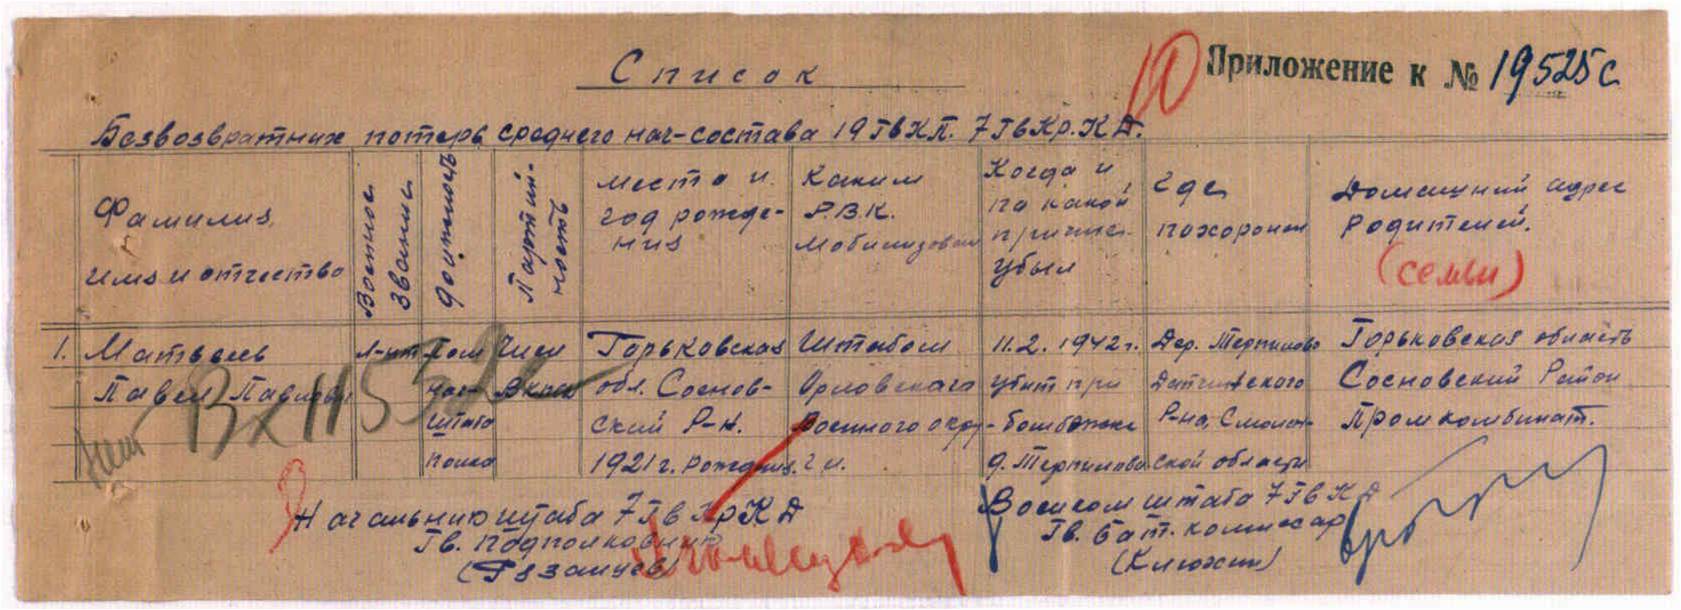 10
Приложение к № 19525с
Список
Безвозвратних потерь среднего нач-состава 19 ГвКП. 7 ГвКр.К.Д.
Фамилия,
имя и отчество
Военное
звание
Должность
Партий-
ность
Место и
год рожде-
ния
Каким
Р.В.К.
мобилизован
Когда и
по какой
причине
убыл
Где
похоронен
Домашний адрес
Родителей.
(семьи)
1. Матвеев
Павел Павлович
л-нт
Пом
нач-
штаба
полка
Член
Вкпб
Горьковская
обл. Соснов-
ский Р-н.
1921 г. рождения.
Штабом
Орловского
военного окру-
га.
11.2.1942 г.
Убит при
бомбёжке
д. Терпилово
Дер. Терпилово
Р-на, Смолен-
ской области
Горьковская область
Сосновский Район
Пром комбинат.
Вх 1155
Начальник штаба 7 Гв КрКД
Гв. Подполковник
(Рязанцев)
Военком штаба 7 Гв КД
Гв. Бат. комиссар
(Клюжин)